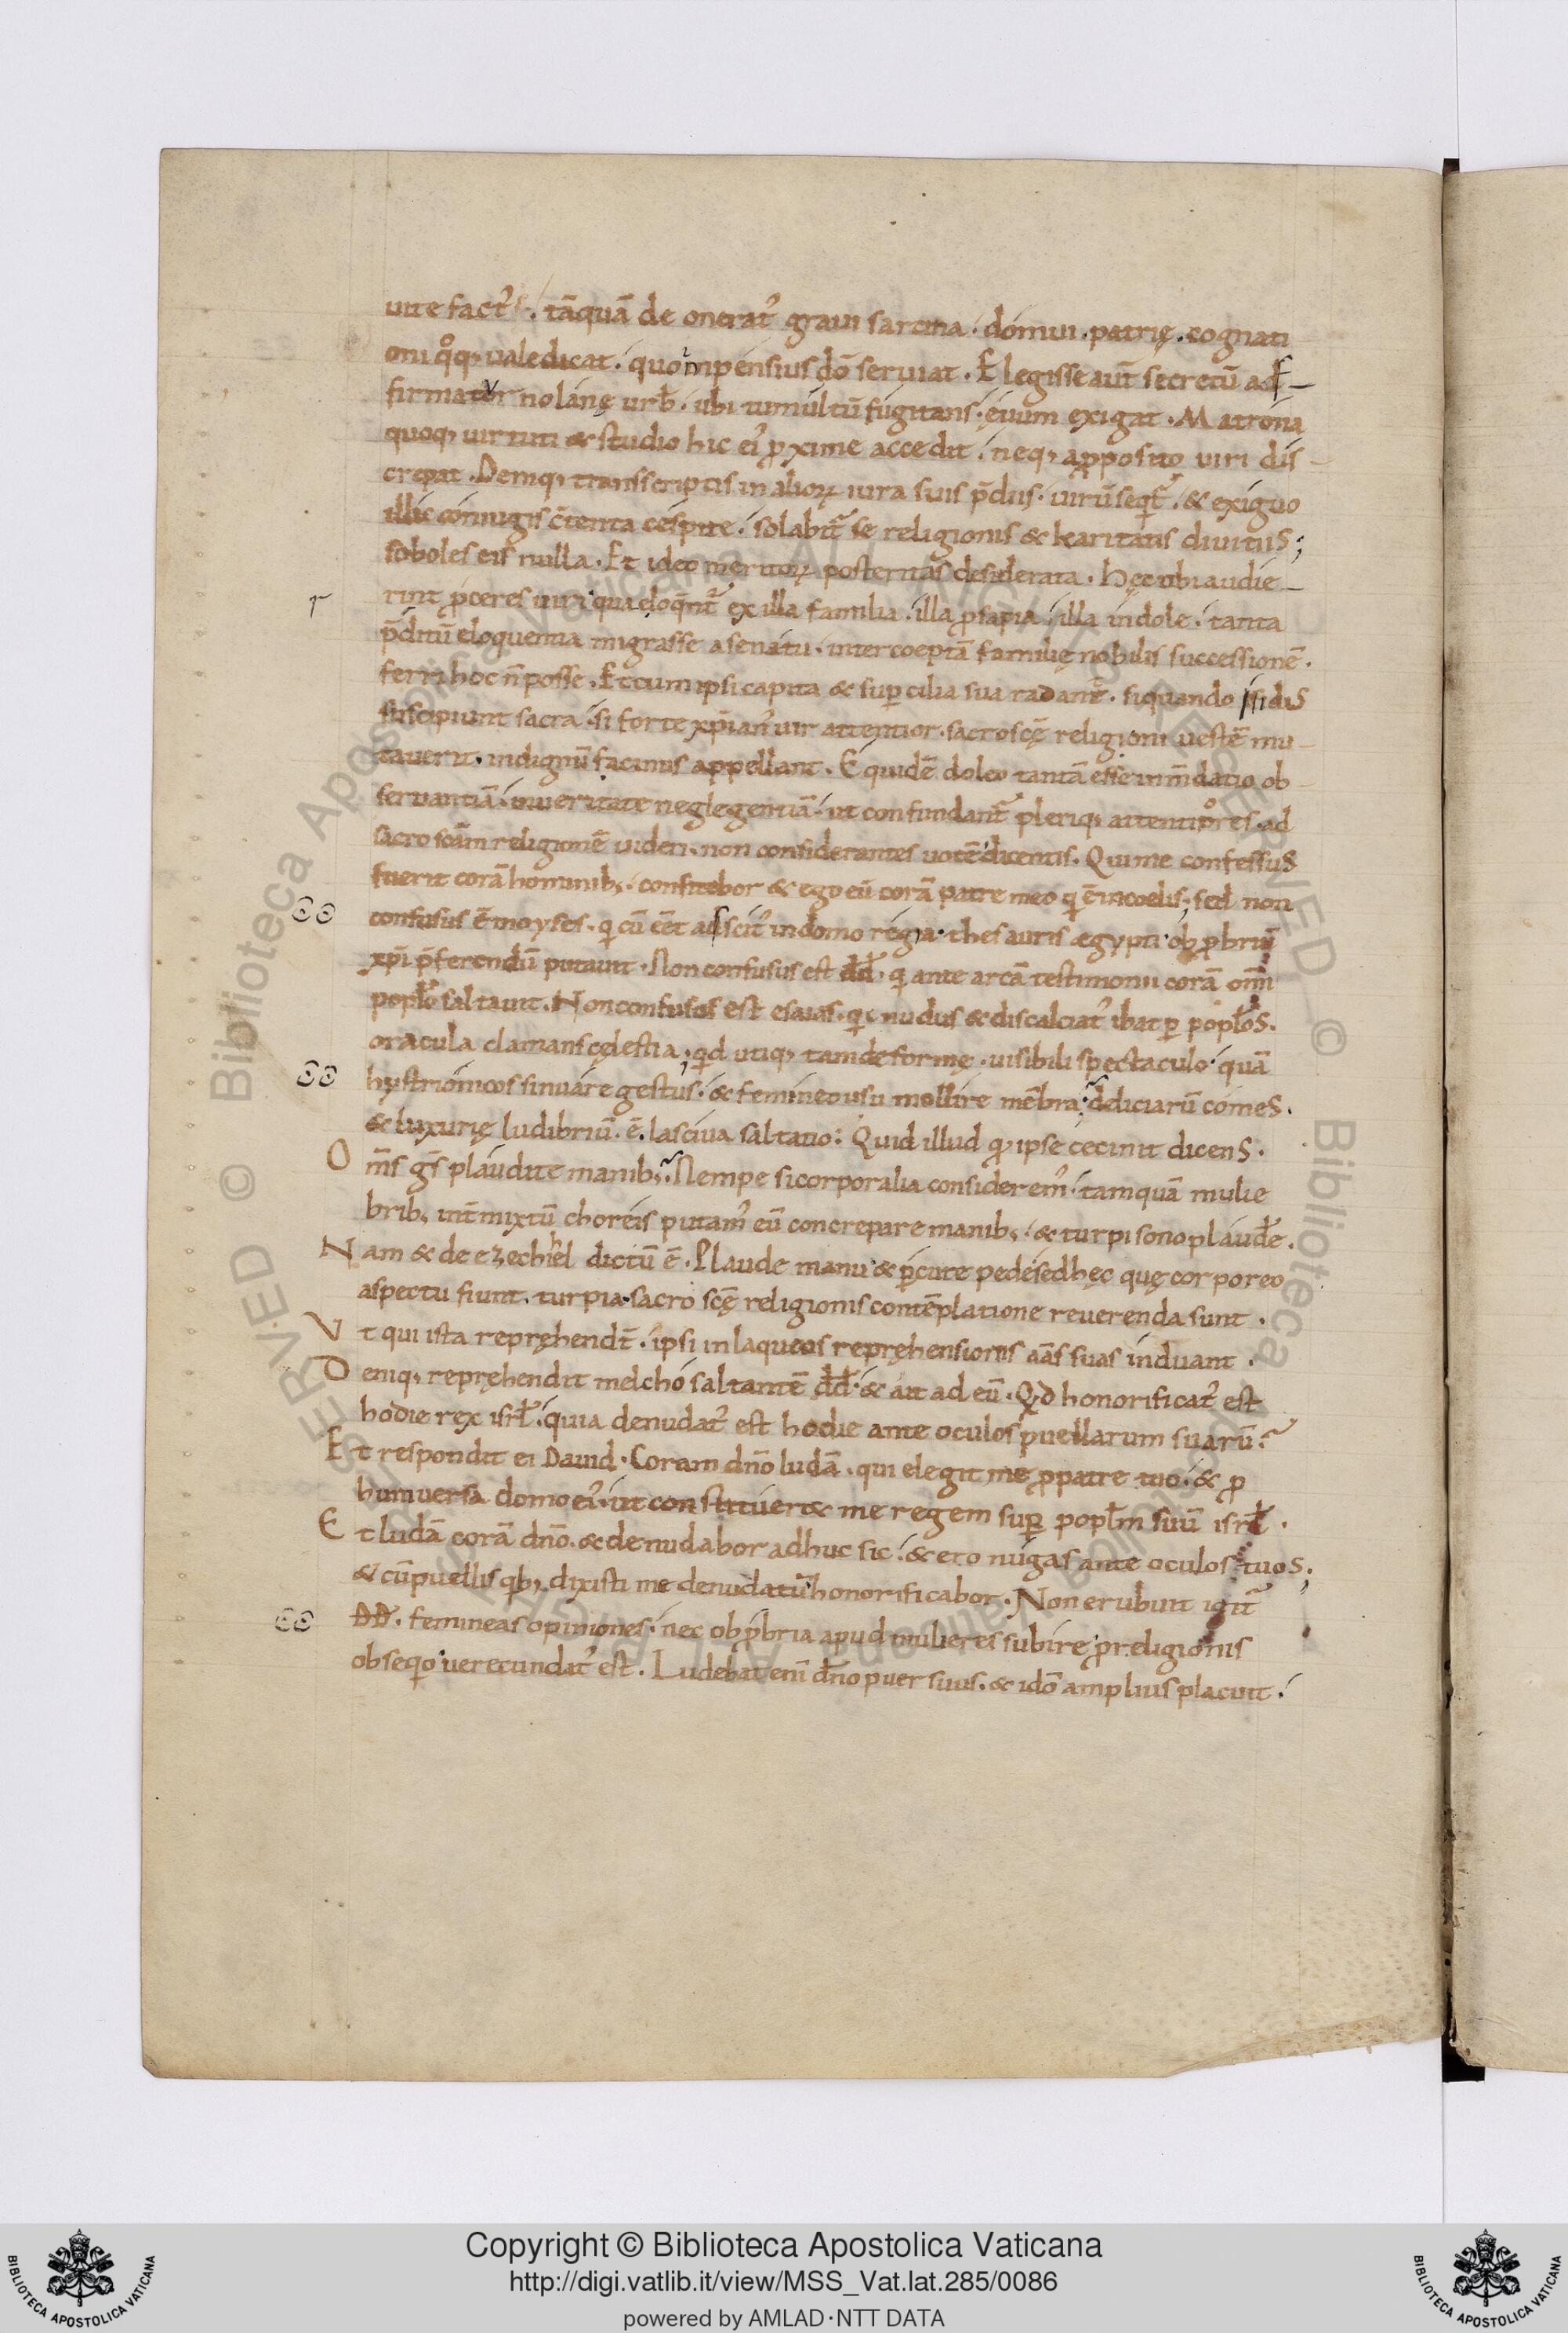 uite fact᾽ . tāquā de onerat᾽ graui sarcina . domui . patrię . cognati
oni qͦq; uale dicat . quo inpensius dō seruiat . Elegisse aut̄ secretū adf
firmatvr nolanę urb̄ . ubi tumultū fugitans . ęuum exigat . Matrona
quoq; uirtuti & studio hic ei᾽ ꝓxime accedit . neq; a ꝓposito uiri dis
crepat . Deniq; transscriptis in alioꝝ iura suis p̄diis . uirū seqit̄ . & exiguo
illic coniugis c̄tenta cespite . solabit̄ se religionis & karitatis diuitiis ;
soboles eis nulla . Et ideo meritoꝝ posteritas desiderata . Hęc ubi audie
rint ꝓceres uiri qua eloq̄nt̄ ex illa familia . illa ꝓsapia . illa indole . tanta
p̄ditū eloquentia migrasse a senatu . interceptā familię nobilis successionē .
ferri hoc n̄ posse . Et cum ipsi capita & suꝑcilia sua radant . siquando isidis
suscipiunt sacra . si forte xp̄ian᾽ uir attentior . sacroscę̄ religioni uestē mu
tauerit . indignū facinus appellant . Equidē doleo tantā esse in m̄datio ob
seruantiā . in ueritate neglegentiā . ut confundant̄ pleriq; attentiores . ad
sacro sc̄am religionē uideri . non considerantes uocē dicentis . Qui me confessus
fuerit corā hominib; . confitebor & ego eū corā patre meo q ē in coelis ; sed non
confusus ē moyses . q cū eēt adscit᾽ in domo regia . thesauris ægypti obꝓbriū
xp̄i p̄ferendū putauit . Non confusus est dd̄ . q ante arcā testimonii corā om̄i
popl̄o saltauit . Non confusus est esaias . q nudus & discalciat᾽ ibat ꝑ popl̄os .
oracula clamans cęlestia ; qd utiq; tam deformę . uisibili spectaculo quā
hystrionicos sinuare gestus . & femineo usu mollire mēbra . deliciarū comes .
& luxurię ludibriū . ē . lasciua saltatio : Quid illud qͩ ipse cecinit dicens .
O m̄s gs̄ plaudite manib; . Nempe si corporalia considerem᾽ . tamquā mulie
brib; int̄mixtū choreis putam᾽ eū concrepare manib; . & turpi sono plaudē .
N am & de ezechihel dictū ē . Plaude manu & ꝑcute pede . sed hęc quę corporeo
aspectu fiunt . turpia . sacro scę̄ religionis contēplatione reuerenda sunt .
V t qui ista repręhendt̄ . ipsi in laqueos repręhensionis aās suas induant .
D eniq; repręhendit melcho saltantē dd̄ . & ait ad eū . Qd honorificat᾽ est
hodie rex isrl̄ . quia denudat᾽ est hodie ante oculos puellarum suarū .
E t respondit ei Dauid . Coram dn̄o ludā . qui elegit me ꝓ patre tuo . & ꝓ
huniuersā domo ei᾽ . ut constituer& me regem suꝑ popl̄m suū isrl̄ .
E t ludā corā dn̄o . & denudabor adhuc sic . & ero nugas ante oculos tuos ;
& cū puellis qb; dixisti me denudatū honorificabor . Non erubuit igit̄
DD̄ . femineas opiniones . nec obꝓbria apud mulieres subire ꝓ religionis
obseqo uerecundat᾽ est . Ludebat enī dn̄o puer suus . & idō amplius placuit .
Copyright © Biblioteca Apostolica Vaticana
http://digi.vatlib.it/view/MSS_Vat.lat.285/0086
powered by AMLAD·NTT DATA
BIBLIOTECA APOSTOLICA VATICANA
BIBLIOTECA APOSTOLICA VATICANA